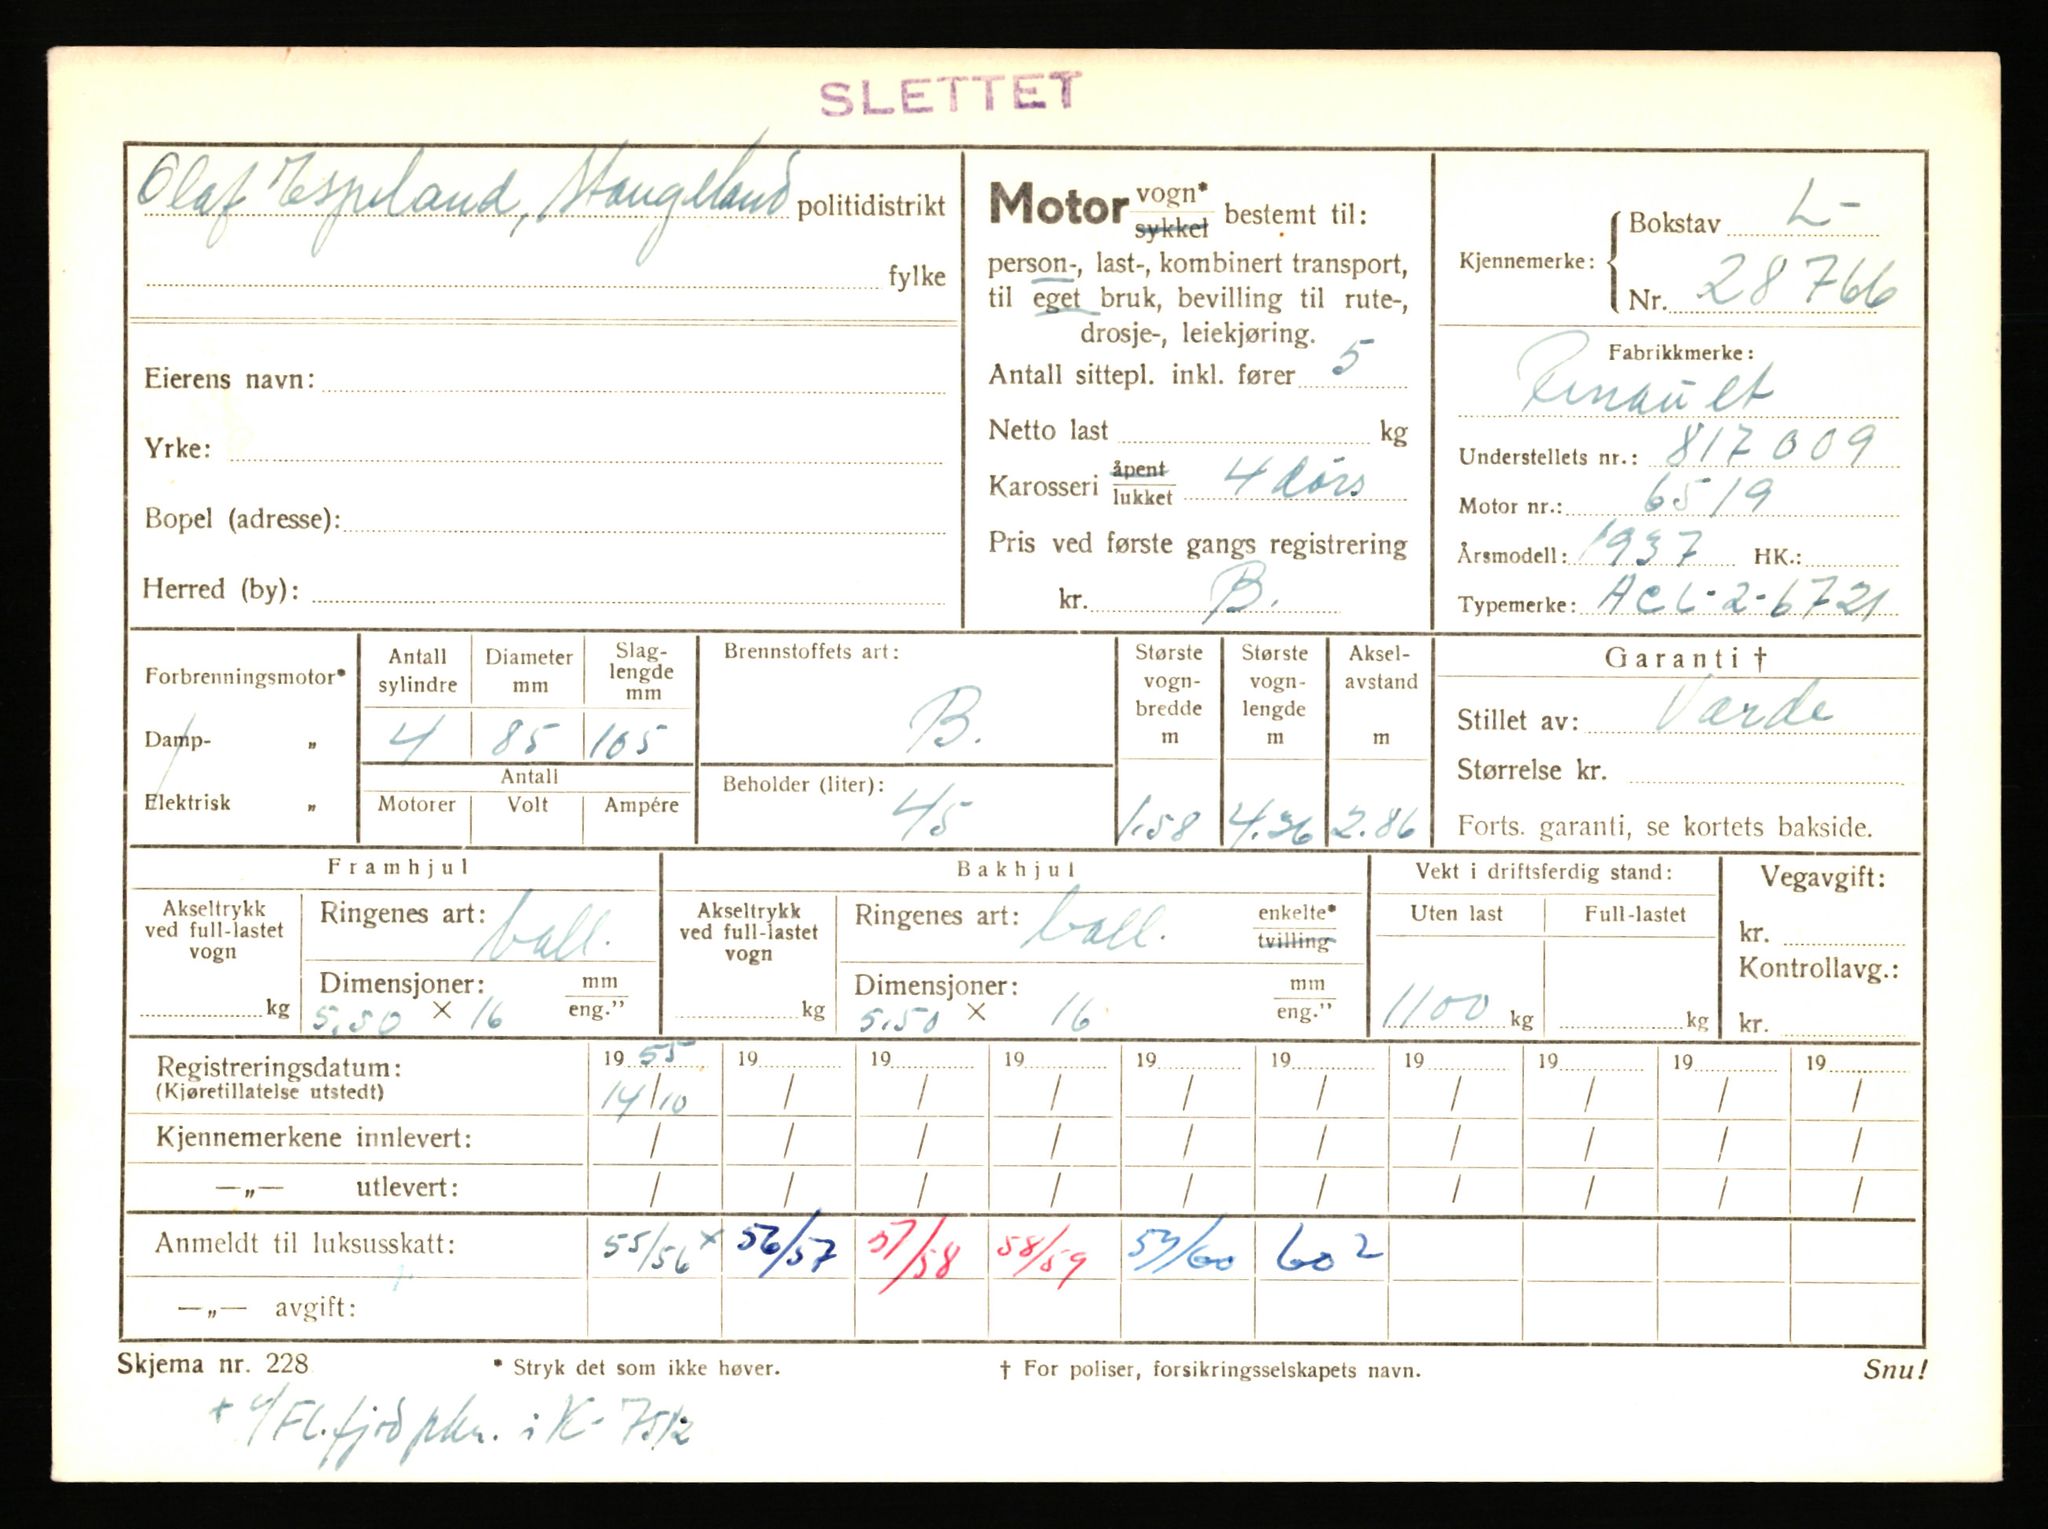 SLETTET
Olaf Espeland, Stangeland politidistrikt
fylke
Eierens navn:
Yrke:
Bopel (adresse):
Herred (by):
Motor vogn* sykkel bestemt til:
person-, last-, kombinert transport,
til eget bruk, bevilling til rute-,
drosje-, leiekjøring.
Antall sittepl. inkl. fører 5
Netto last kg
Karosseri åpent lukket 4 dørs
Pris ved første gangs registrering
kr. B.
Kjennemerke: Bokstav L-
Nr. 28766
Fabrikkmerke:
Renault
Understellets nr.: 817009
Motor nr.: 6519
Årsmodell: 1937 HK.:
Typemerke: ACL-2-6721
Forbrenningsmotor*
Damp- „
Elektrisk „
Antall sylindre Diameter mm Slag-lengde mm
4 85 105
Antall
Motorer Volt Ampére
Brennstoffets art:
B.
Beholder (liter):
45
Største vogn-bredde m
1.58
Største vogn-lengde m
4.36
Aksel-avstand m
2.86
Garanti †
Stillet av: Varde
Størrelse kr.
Forts. garanti, se kortets bakside.
Framhjul
Akseltrykk ved full-lastet vogn
kg
Ringenes art: ball.
Dimensjoner: mm eng."
5.50 × 16
Bakhjul
Akseltrykk ved full-lastet vogn
kg
Ringenes art: ball. enkelte* tvilling
Dimensjoner: mm eng."
5.50 × 16
Vekt i driftsferdig stand:
Uten last Full-lastet
1100 kg kg
Vegavgift:
kr.
Kontrollavg.:
kr.
Registreringsdatum: 1955 19 19 19 19 19 19 19 19 19
(Kjøretillatelse utstedt) 14/10 / / / / / / / / /
Kjennemerkene innlevert: / / / / / / / / / /
—„— utlevert: / / / / / / / / / /
Anmeldt til luksusskatt: 55/56 x 56/57 57/58 58/59 59/60 60 2
—„— avgift:
Skjema nr. 228 * Stryk det som ikke høver. † For poliser, forsikringsselskapets navn. Snu!
i K- 7512